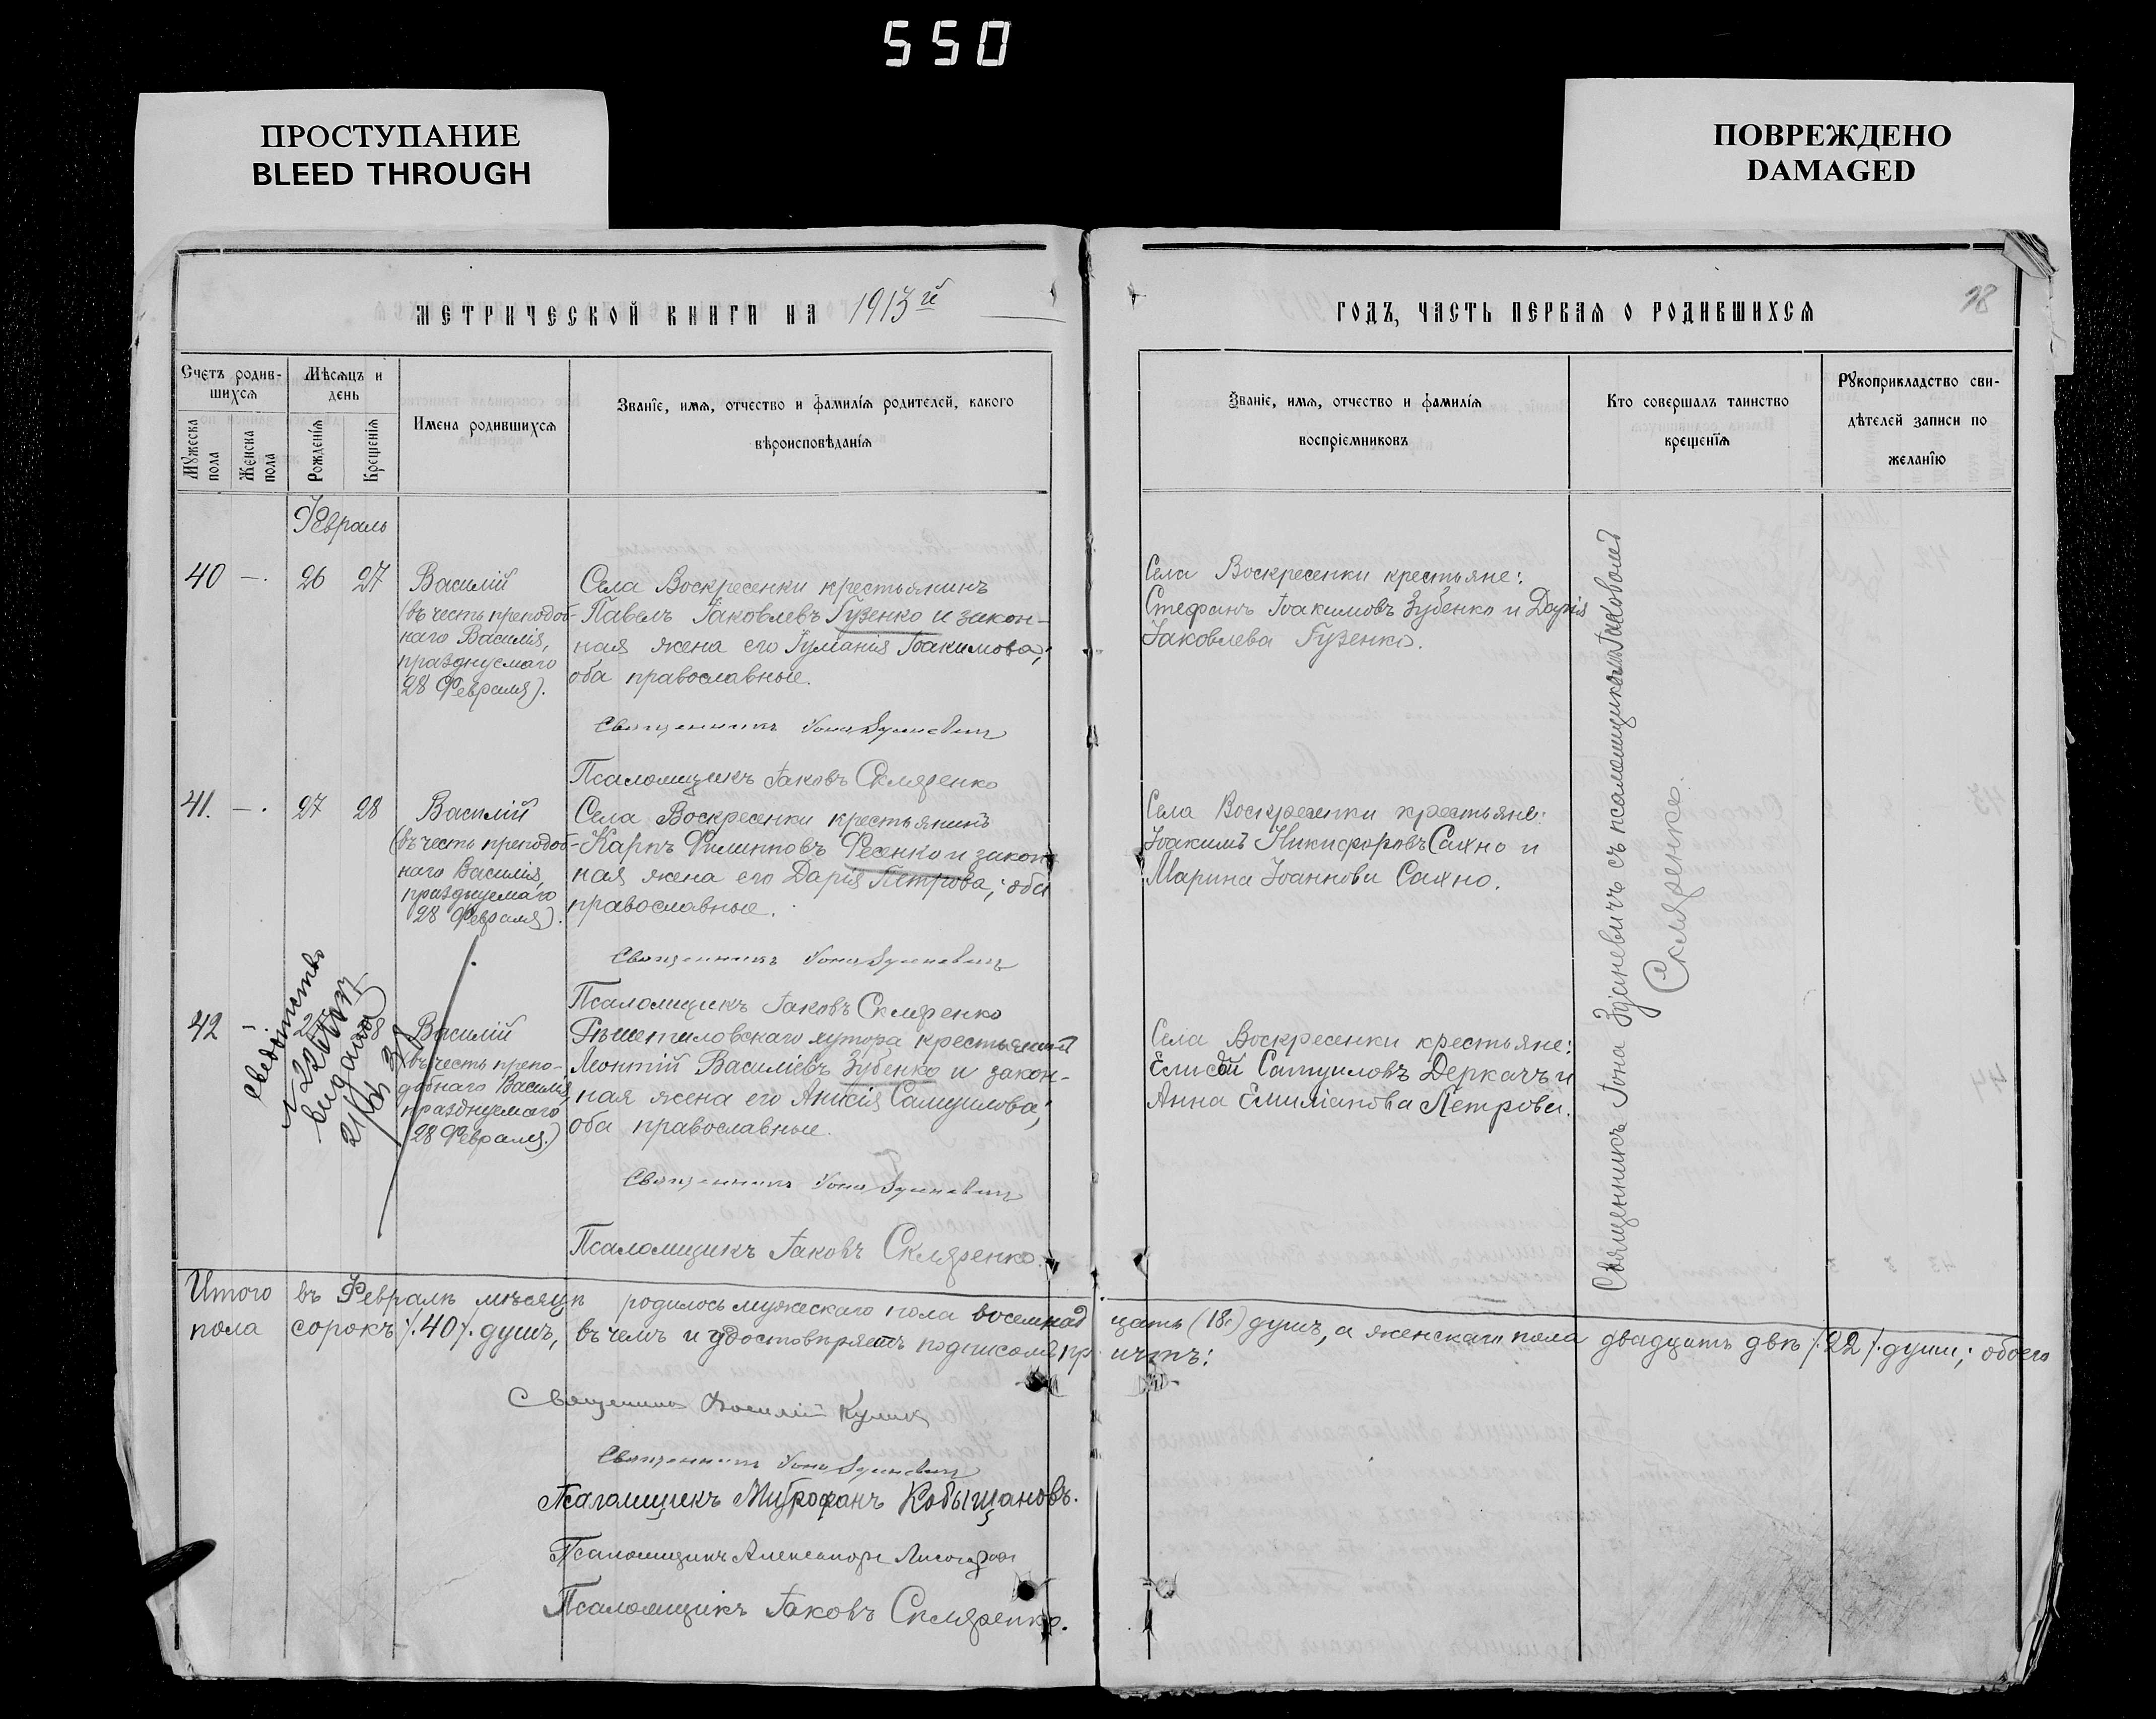 550
ПРОСТУПАНИЕ
BLEED THROUGH
ПОВРЕЖДЕНО
DAMAGED
МЕТРИЧЕСКОЙ КНИГИ НА 1913й
ГОДЪ, ЧАСТЬ ПЕРВАЯ О РОДИВШИХСЯ
98
Счетъ родив-
шихся
Мужеска пола
Женска пола
Мѣсяцъ и
день
Рожденія
Крещенія
Имена родившихся
Званіе, имя, отчество и фамилія родителей, какого
вѣроисповѣданія
Званіе, имя, отчество и фамилія
воспріемниковъ
Кто совершалъ таинство
крещенія
Рукоприкладство сви-
дѣтелей записи по
желанію
Февраль
40 —. 26 27
Василій
(въ честь преподоб-
наго Василія,
празднуемаго
28 Февраля).
Села Воскресенки крестьянинъ
Павелъ Іаковлевъ Гузенко и закон-
ная жена его Іуліанія Іоакимова;
оба православные.
Священникъ Іона Зузневичъ
Псаломщикъ Іаковъ Скляренко
Села Воскресенки крестьяне:
Стефанъ Іоакимовъ Зубенко и Дарія
Іаковлева Гузенко.
41. —. 27 28
Василій
(въ честь преподоб-
наго Василія,
празднуемаго
28 Февраля).
Села Воскресенки крестьянинъ
Карпъ Филипповъ Фесенко и закон-
ная жена его Дарія Петрова; оба
православные.
Священникъ Іона Зузневичъ
Псаломщикъ Іаковъ Скляренко
Села Воскресенки крестьяне:
Іоакимъ Никифоровъ Сахно и
Марина Іоаннова Сахно.
42
Свидѣтельство
выдана
Василій
(въ честь препо-
добнаго Василія,
празднуемаго
28 Февраля.)
хутора крестьянинъ
Леонтій Василіевъ Зубенко и закон-
ная жена его Анисія Самуилова;
оба православные.
Священникъ Іона Зузневичъ
Псаломщикъ Іаковъ Скляренко.
Села Воскресенки крестьяне:
Елисей Самуиловъ Деркачъ и
Анна Емиліанова Петрова.
Священникъ Іона Зузневичъ съ псаломщикомъ Іаковомъ
Скляренко.
Итого въ Февралѣ мѣсяцѣ родилось мужескаго пола восемнадцать (18.) душъ, а женскаго пола двадцать двѣ /.22/. души; обоего
пола сорокъ /.40/. душъ, въ чемъ и удостовѣряетъ подписомъ причтъ:
Священникъ Василій Куликъ
Священникъ Іона Зузневичъ
Псаломщикъ Митрофанъ Кобыщановъ.
Псаломщикъ Александръ
Псаломщикъ Іаковъ Скляренко.